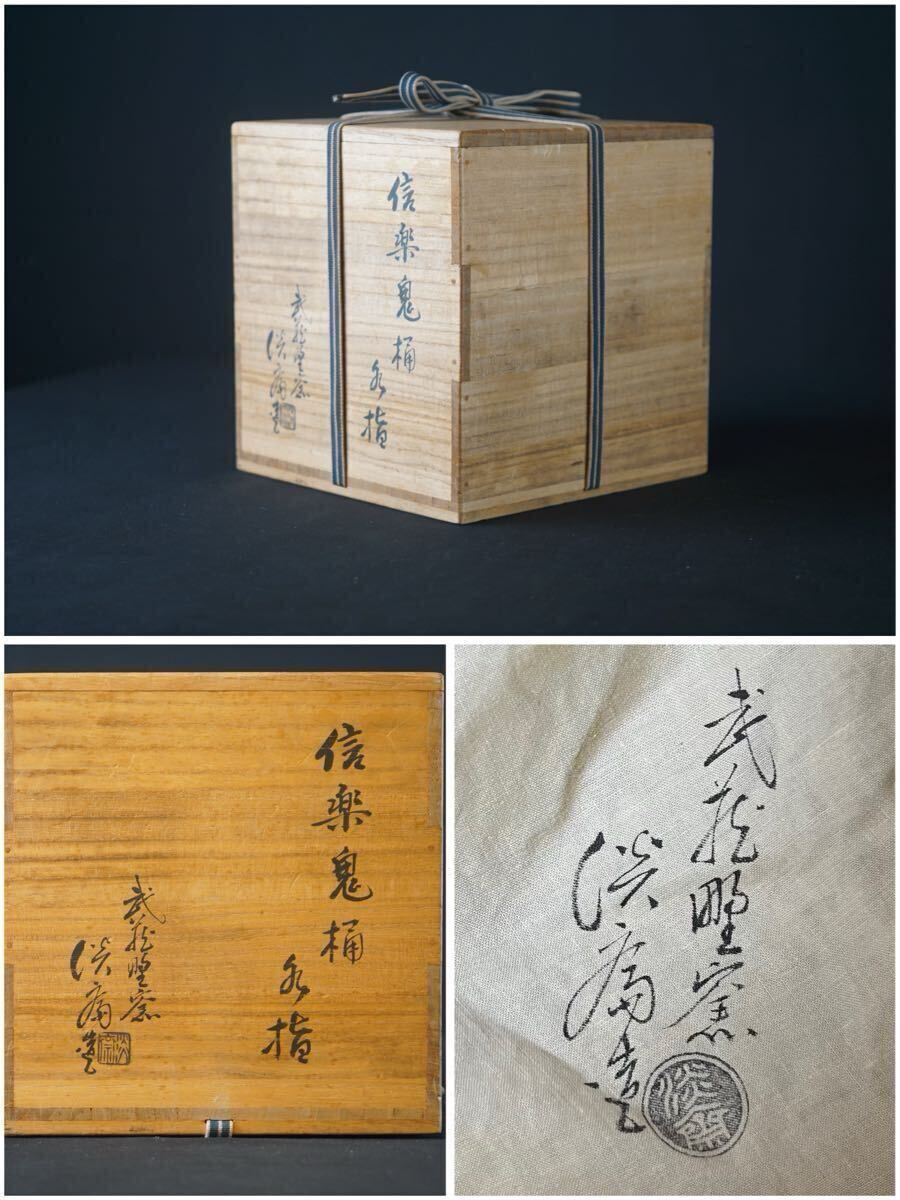 信楽鬼桶
水指
武蔵野窯
淡斎造
信楽鬼桶
水指
武蔵野窯
淡斎造
武蔵野窯
淡斎造